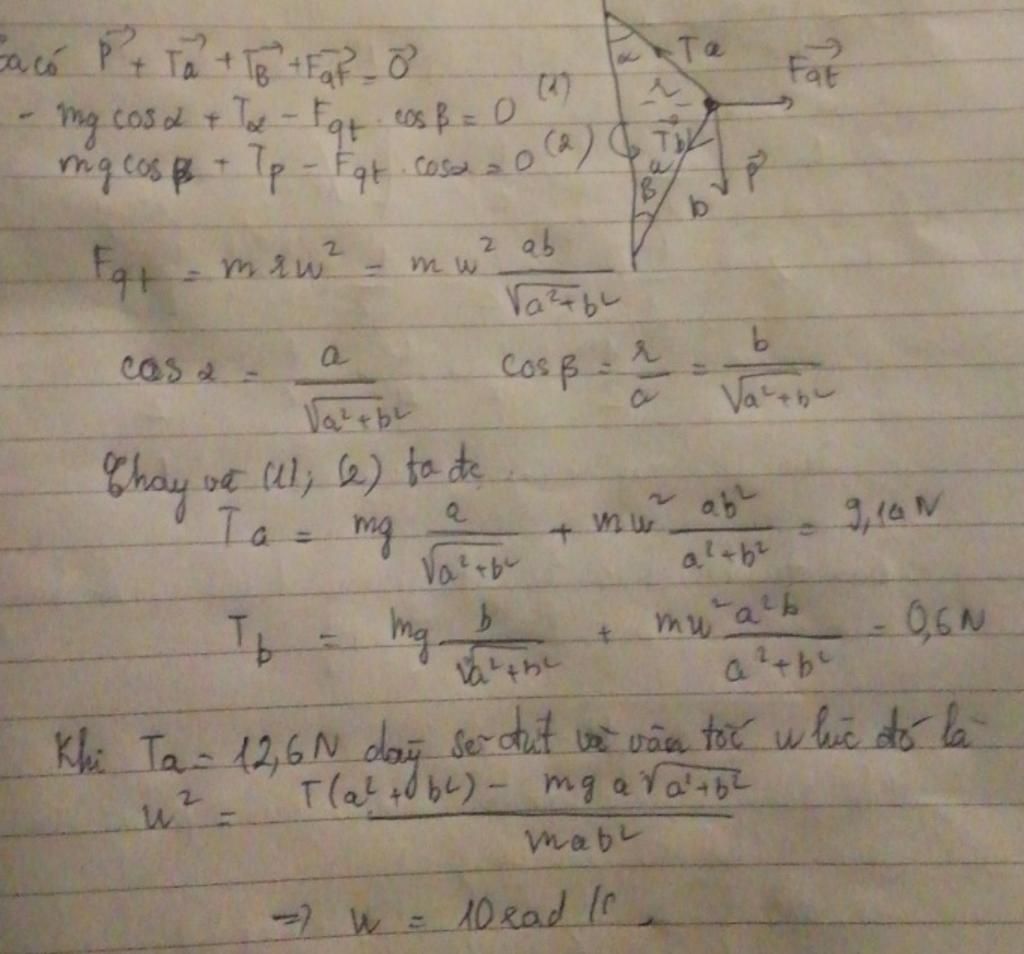 Ta có P⃗ + Ta⃗ + TB⃗ + Fqt⃗ = 0⃗
- mg cosα + Tα - Fqt . cosβ = 0 (1)
mg cosβ + Tβ - Fqt . cosα = 0 (2)
α Ta Fqt⃗
r
Tb⃗
a P⃗
β b
Fqt = m r w² = m w² ab / √a²+b²
cosα = a / √a²+b² cosβ = r / a = b / √a²+b²
Thay và (1); (2) ta đc
Ta = mg a / √a²+b² + mw² ab² / a²+b² = 9,1 N
Tb = mg b / √a²+b² + mw² a²b / a²+b² = 0,6 N
Khi Ta = 12,6 N dây sẽ đứt và vân tốc w lúc đó là
w² = T(a² + b²) - mg a √a²+b² / mab²
=> w = 10 rad /s.